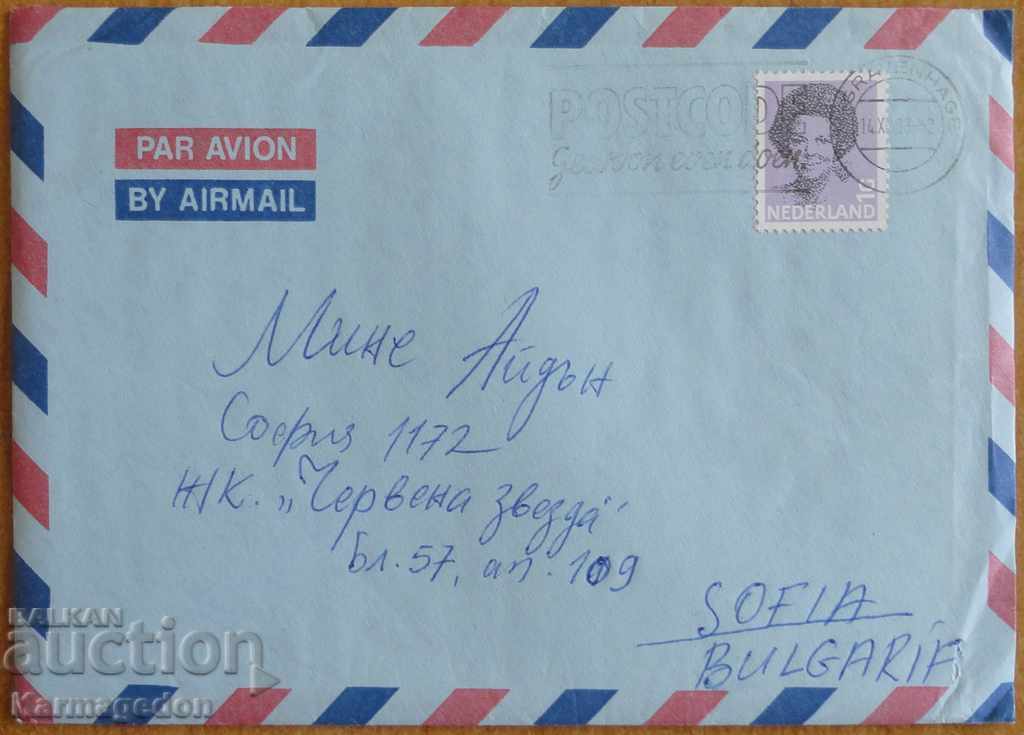 PAR AVION
BY AIRMAIL
POSTCODE
GRAVENHAGE
NEDERLAND
Мине Айдън
София 1172
ЖК. „Червена звезда“
Бл. 57, ап. 109
SOFIA
BULGARIA
BALKAN
auction
Karmagedon